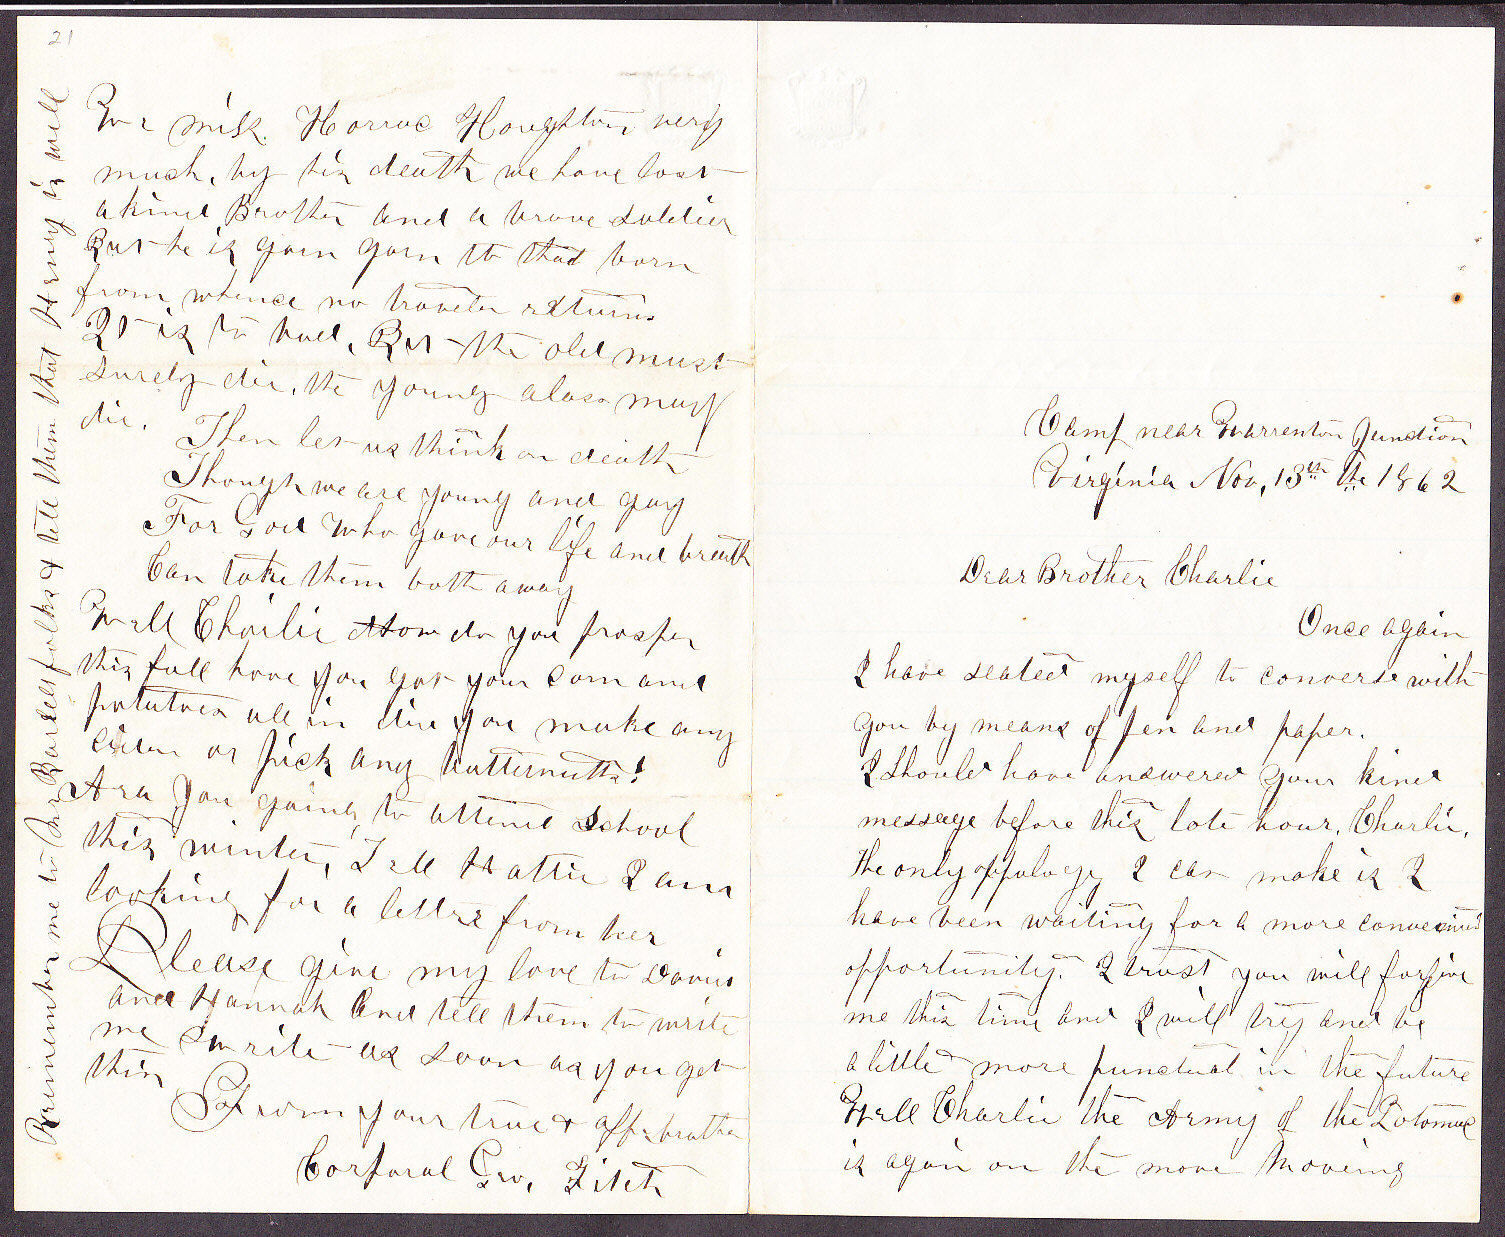 Camp near Warrenton Junction
Virginia Nov, 13th the 1862
Dear Brother Charlie
Once again
I have seated myself to converse with
you by means of pen and paper.
I should have answered your kind
message before this late hour, Charlie,
the only oppology I can make is I
have been waiting for a more convenient
opportunity. I trust you will forgive
me this time and I will try and be
a little more punctual in the future
Well Charlie the Army of the Potomac
is again on the move moveing
21
We miss Horrac Houghton very
much, by his death we have lost
a kind Brother and a brave soldier
But he is gorn gorn to that born
from whence no traveler returns
It is to bad, But the old must
surely die, the young alass may
die.
Then let us think on death
Though we are young and gay
For God who gave our life and breath
Can take them both away
Well Charlie How do you prosper
this fall have you got your corn and
potatoes all in did you make any
cider or pick any butternutts!
Are you going to attend school
this winter, Tell Hattie I am
looking for a letter from her
Please give my love to
and Hannah And tell them to write
me write as soon as you get
this
From your true & aff. brother
Corporal Geo, Fitch
Remember me to Mr folks & tell them that Henry is well